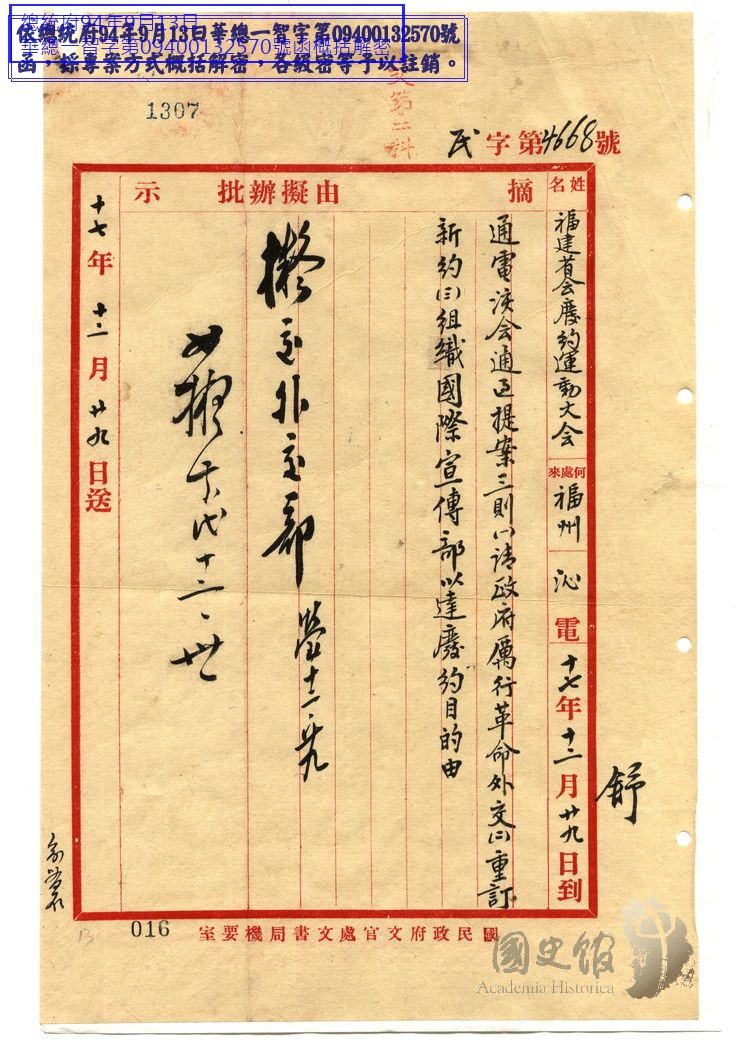 總統府94年9月13日
華總一智字第09400132570號函概括解密
依總統府94年9月13日華總一智字第09400132570號
函，採專案方式概括解密，各級密等予以註銷。
1307
文第二科
民字第4668號
姓名
福建省会廢約運動大会
何處來
福州
沁電
十七年十二月廿九日到
舒
摘由
通電該会通过提案三則(一)請政府厲行革命外交(二)重訂
新約(三)組織國際宣傳部以達廢約目的由
擬辦
擬交外交部
十二、廿九
批示
十二、卅
十七年十二月廿九日送
016
13
國民政府文官處文書局機要室
國史館
Academia Historica